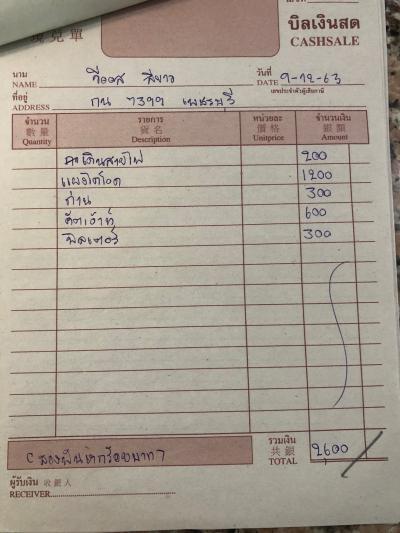 現 兌 單
บิลเงินสด
CASHSALE
นาม
NAME
วันที่
DATE 9-12-63
ที่อยู่
ADDRESS กน 7399 เพชรบุรี
เลขประจำตัวผู้เสียภาษี
จำนวน 數量 Quantity
รายการ 貨名 Description
หน่วยละ 價格 Unitprice
จำนวนเงิน 銀額 Amount
ค่าเดินสายไฟ 200
แผงไดโอด 1200
ถ่าน 300
คัตเอ้าท์ 600
ฟิลเตอร์ 300
(สองพันหกร้อยบาท)
รวมเงิน
共銀
TOTAL 2600
ผู้รับเงิน 收銀人
RECEIVER